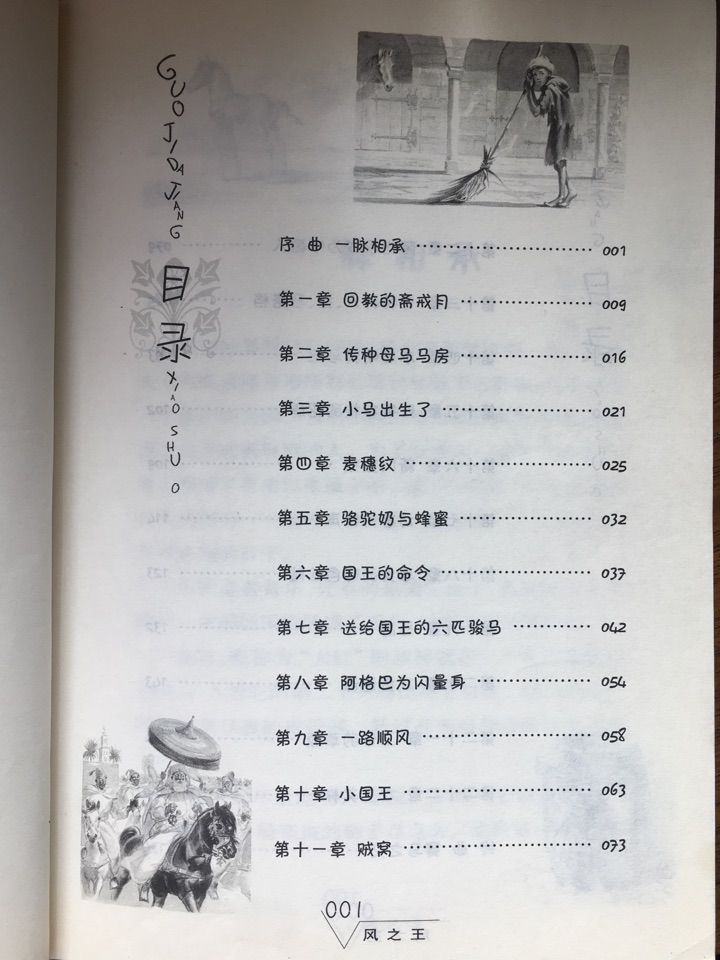 GUO JI DA JIANG
目录
XIAO SHUO
序 曲 一脉相承 ································ 001
第一章 回教的斋戒月 ························ 009
第二章 传种母马马房 ························ 016
第三章 小马出生了 ··························· 021
第四章 麦穗纹 ································· 025
第五章 骆驼奶与蜂蜜 ························ 032
第六章 国王的命令 ··························· 037
第七章 送给国王的六匹骏马 ············ 042
第八章 阿格巴为闪量身 ··················· 054
第九章 一路顺风 ······························ 058
第十章 小国王 ································· 063
第十一章 贼窝 ································· 073
001
风之王